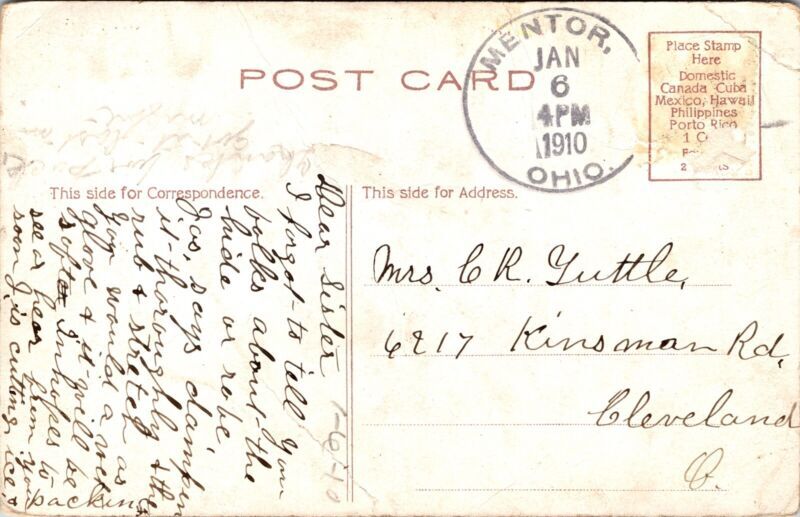 POST CARD
MENTOR,
JAN
6
4PM
1910
OHIO.
Place Stamp
Here
Domestic
Canada Cuba
Mexico, Hawaii
Philippines
Porto Rico
1 C
2
This side for Correspondence.
This side for Address.
Thanks for
Mrs. C R. Tuttle,
6217 Kinsman Rd,
Cleveland
O.
1-6-10
Dear Sister
I forgot to tell you
folks about the
hide or robe
Jas, says dampen
it thoroughly & then
rub & stretch as
you would a wet
glove & it will be
soft In hopes to
see or hear from you
soon J. is cutting ice &
packing